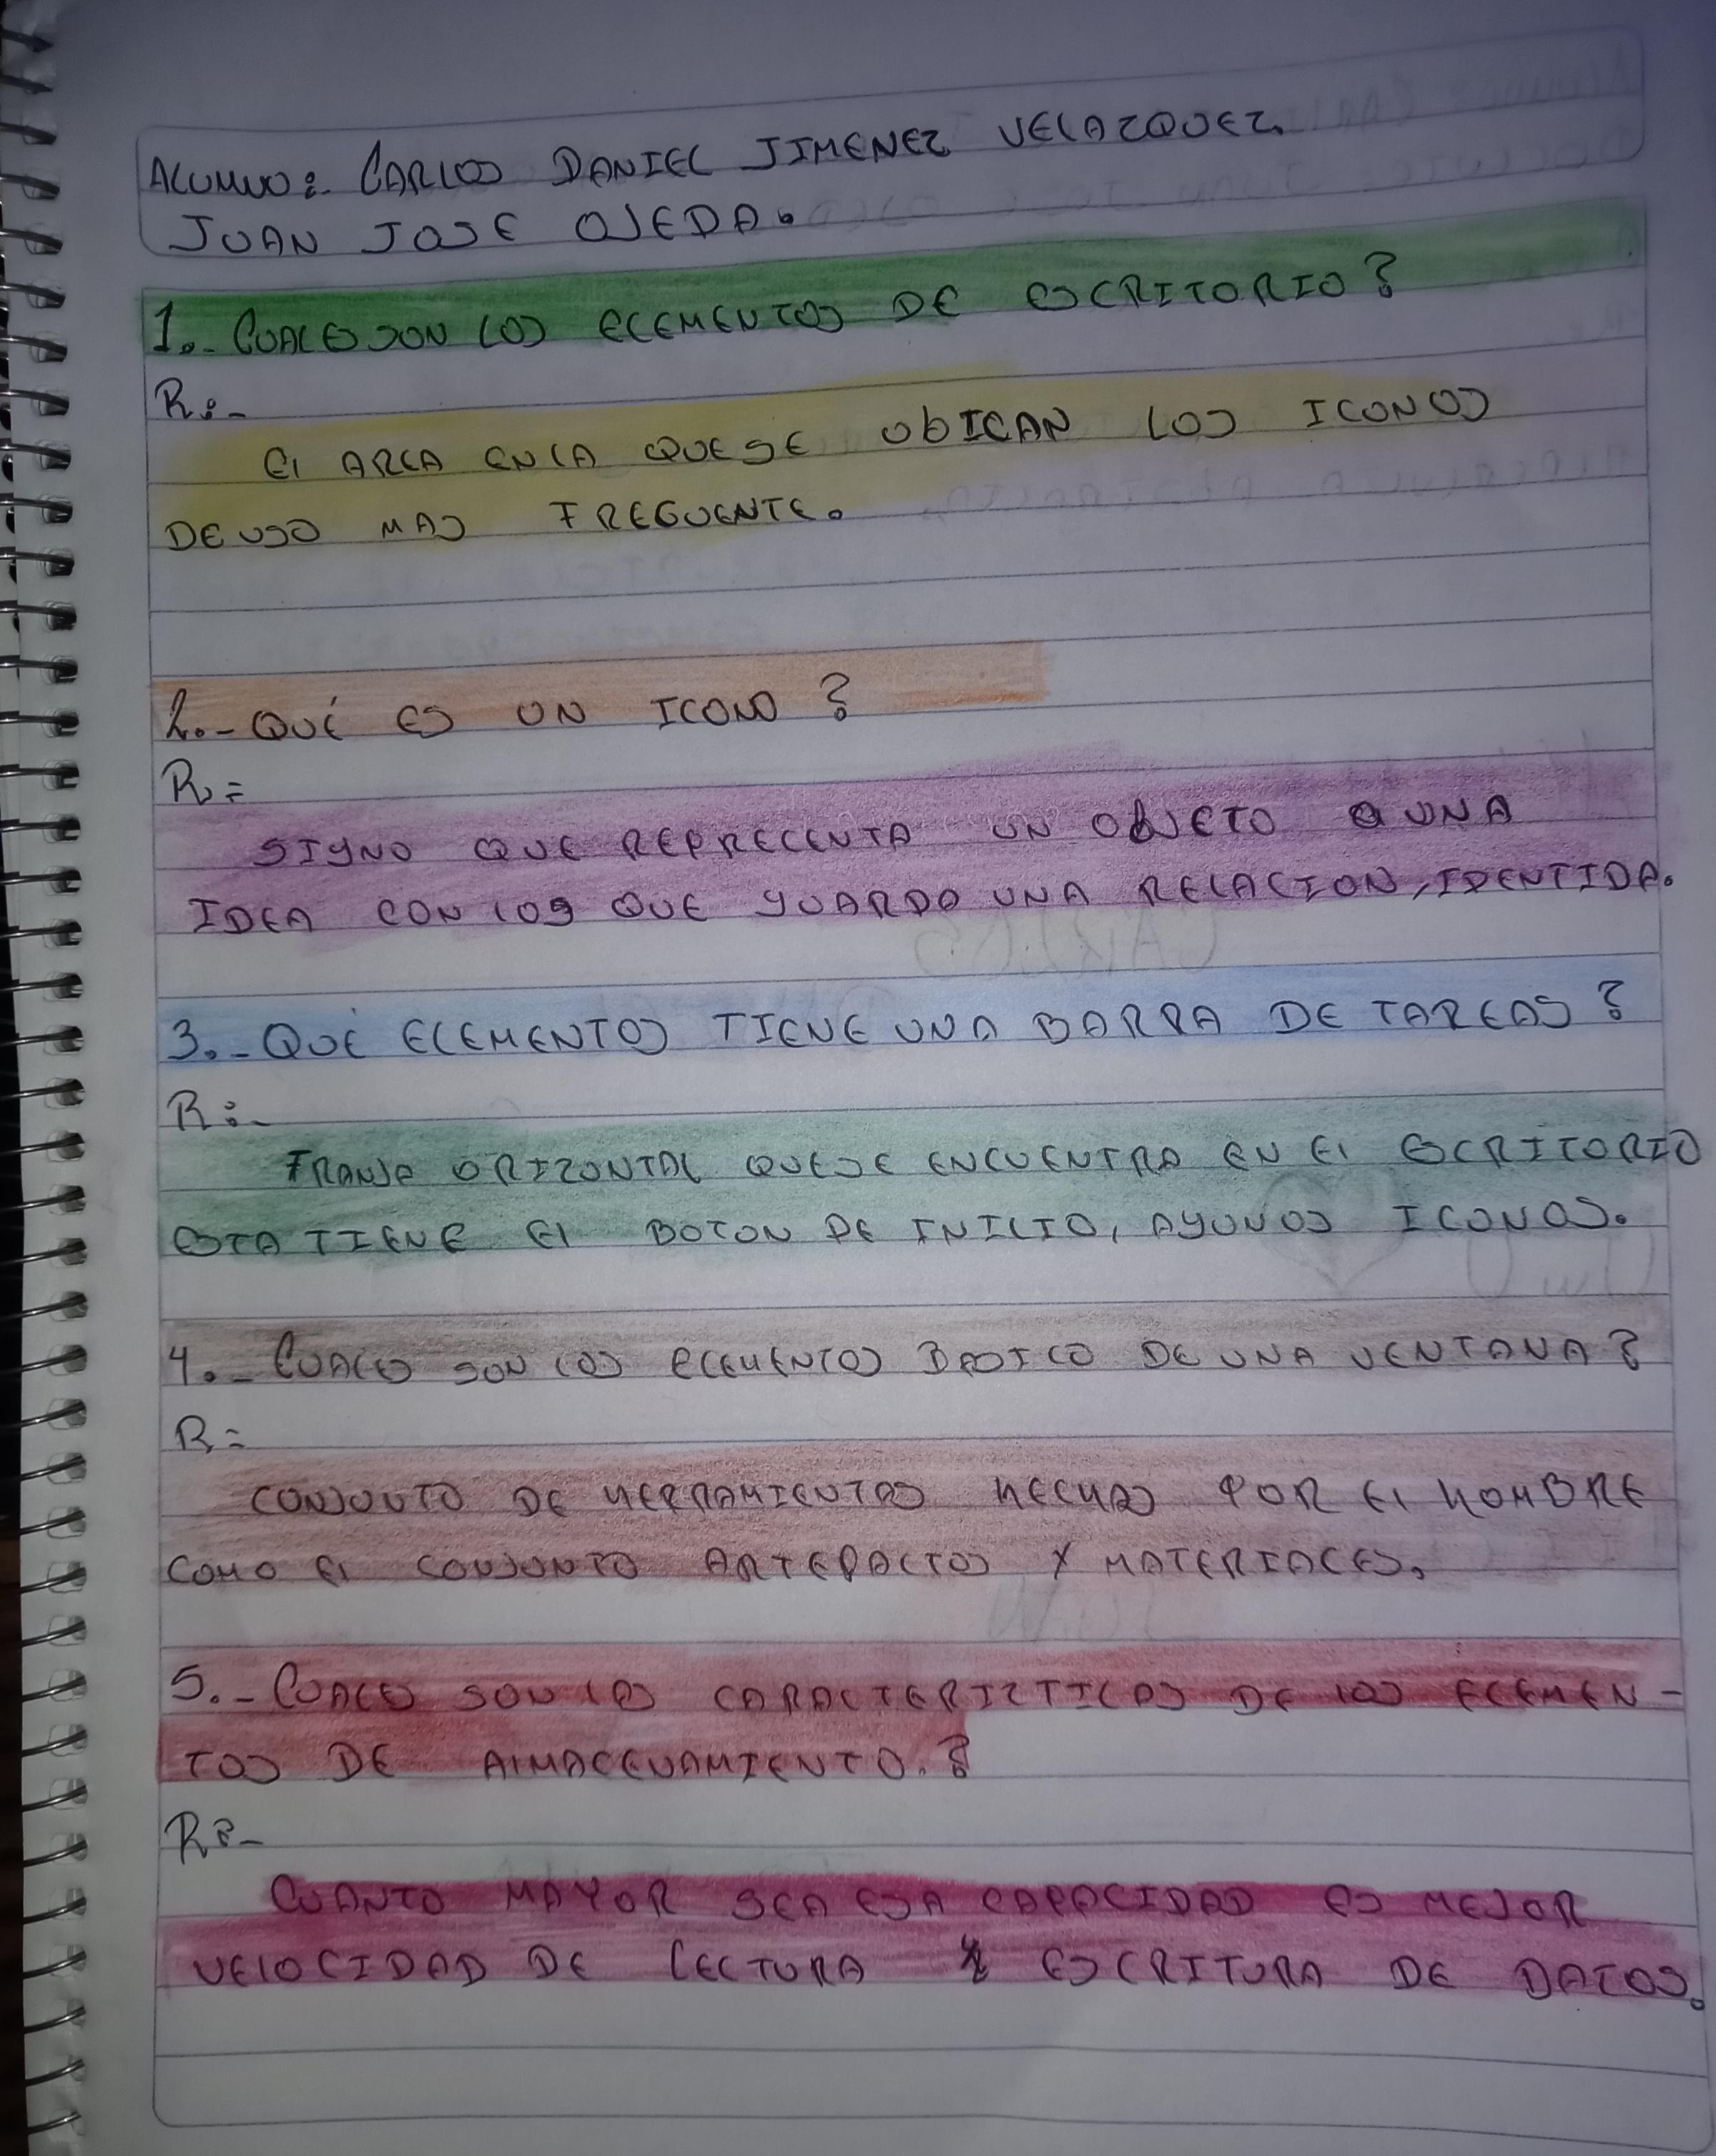 ALUMNO: CARLOS DANIEL JIMENEZ VELAZQUEZ.
JUAN JOSE OJEDA.
1.- CUALES SON LOS ELEMENTOS DE ESCRITORIO?
R:-
El AREA EN LA QUE SE UbICAN LOS ICONOS
DE USO MAS FREGUENTE.
2.- QUÉ ES UN ICONO?
R:=
SIGNO QUE REPRECENTA UN OBJETO O UNA
IDEA CON LOS QUE GUARDO UNA RELACION, IDENTIDA.
3.- QUÉ ELEMENTOS TIENE UNA BARRA DE TAREAS?
R:-
FRANJA ORIZONTAL QUE SE ENCUENTRA EN El ESCRITORIO
ESTA TIENE El BOTON DE INICIO, AGUNOS ICONOS.
4.- CUALES SON LOS ELEMENTOS BASICO DE UNA VENTANA?
R=
CONJUNTO DE HERRAMIENTAS HECHAS POR El HOMBRE
COMO El CONJUNTO ARTEFACTOS Y MATERIALES.
5.- CUALES SON LAS CARACTERIZTICAS DE LOS ELEMEN-
TOS DE AlMACENAMIENTO.?
R:-
CUANTO MAYOR SEA ESA CAPACIDAD ES MEJOR
VELOCIDAD DE LECTURA Y ESCRITURA DE DATOS.